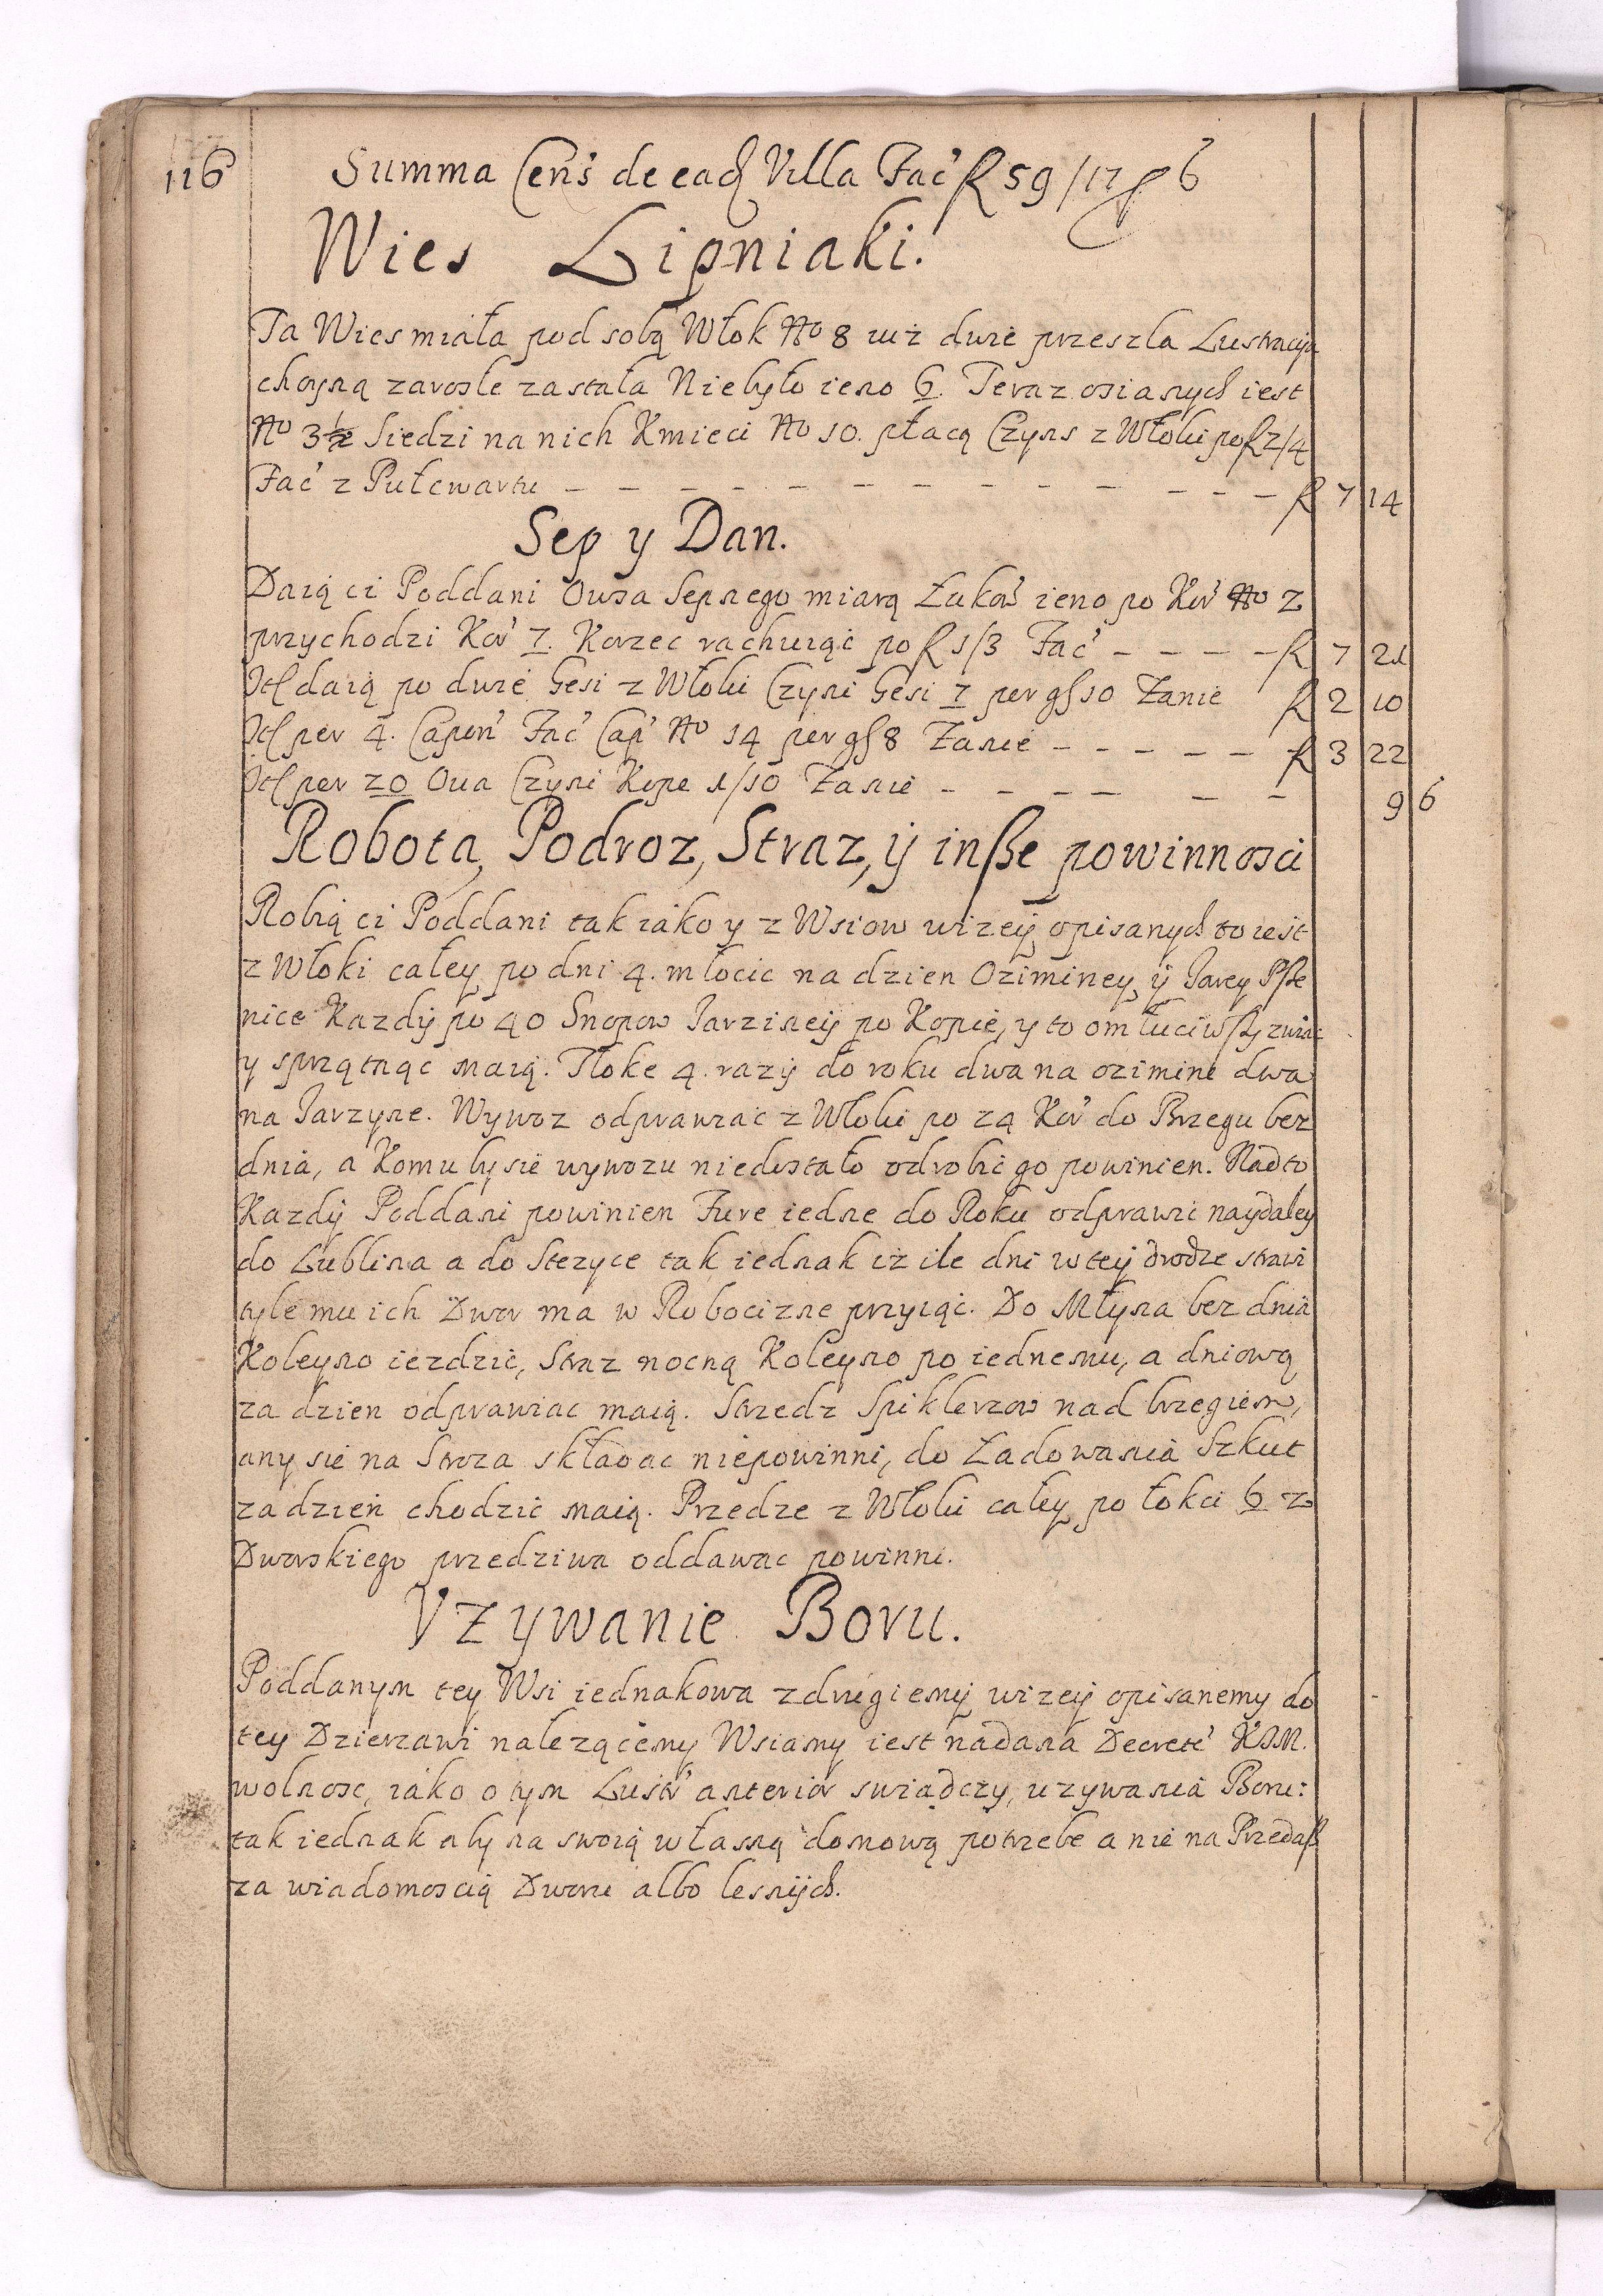 116
Summa Cens' de ead Villa Fac' fl 59/17 ₰ 6
Wies Lipniaki.
Ta Wies miała pod sobą Włok No 8 iuż dwie przeszla Lustracyja
choyną zarosłe zastała Niebyło ieno 6. Teraz osianych iest
No 3½ Siedzi na nich Kmieci No 10. płacą Czyns z Włoki po fl 2/4
Fac' z Pułcwartu – – – – – – – – – – – – – fl 7 14
Sep y Dan.
Daią ci Poddani Owsa Sepnego miarą Łukow' ieno po Kor' No 2
przychodzi Kor' 7. Korzec rachuiąc po fl 1/3 Fac' – – – – fl 7 21
It daią po dwie Gesi z Włoki Czyni Gesi 7 per gs 10 Zanie fl 2 10
It per 4. Capon' Fac' Cap' No 14 per gs 8 Zanie – – – – – fl 3 22
It per 20 Oua Czyni Kope 1/10 Zanie – – – – – – 9 6
Robota, Podroz, Straz, ij inße powinnosci
Robią ci Poddani tak iako y z Wsiow wizeij opisanych to iest
z Włoki całey po dni 4. młocic na dzien Oziminey, ij Iarey Pße
nice Kazdij po 40 Snopow Iarzineij po Kopie, y to omłuciwßy zwiac
y sprzątnąc maią. Tłoke 4. razij do roku dwa na ozimine dwa
na Iarzyne. Wywoz odprawiac z Włoki po 24 Kor' do Brzegu bez
dnia, a Komu by sie wywozu niedostało odrobic go powinien. Nadto
Kazdij Poddani powinien Fure iedne do Roku odprawic naydaley
do Lublina a do Stezyce tak iednak iz ile dni w teij drodze strawi
tyle mu ich Dwor ma w Robocizne przyiąc. Do Młyna bez dnia
Koleyno iezdzic, Straz nocną Koleyno po iednemu, a dniową
za dzien odprawiac maią. Strzedz Spiklerzow nad brzegiem,
any sie na Stroza składac niepowinni, do Ładowania Szkut
za dzien chodzic maią. Przedze z Włoki całey po łokci 6 z
Dworskiego przedziwa oddawac powinni.
Vzywanie Boru.
Poddanym tey Wsi iednakowa z drugiemij wizeij opisanemy do
tey Dzierzawi nalezącemy Wsiamy iest nadana Decrete' KJM.
wolnosc, iako o tym Lustr' anterior swiadczy, uzywania Boru:
tak iednak aby na swoią własną domową potrzebe a nie na Przedaß
za wiadomoscią Dworu albo lesnijch.